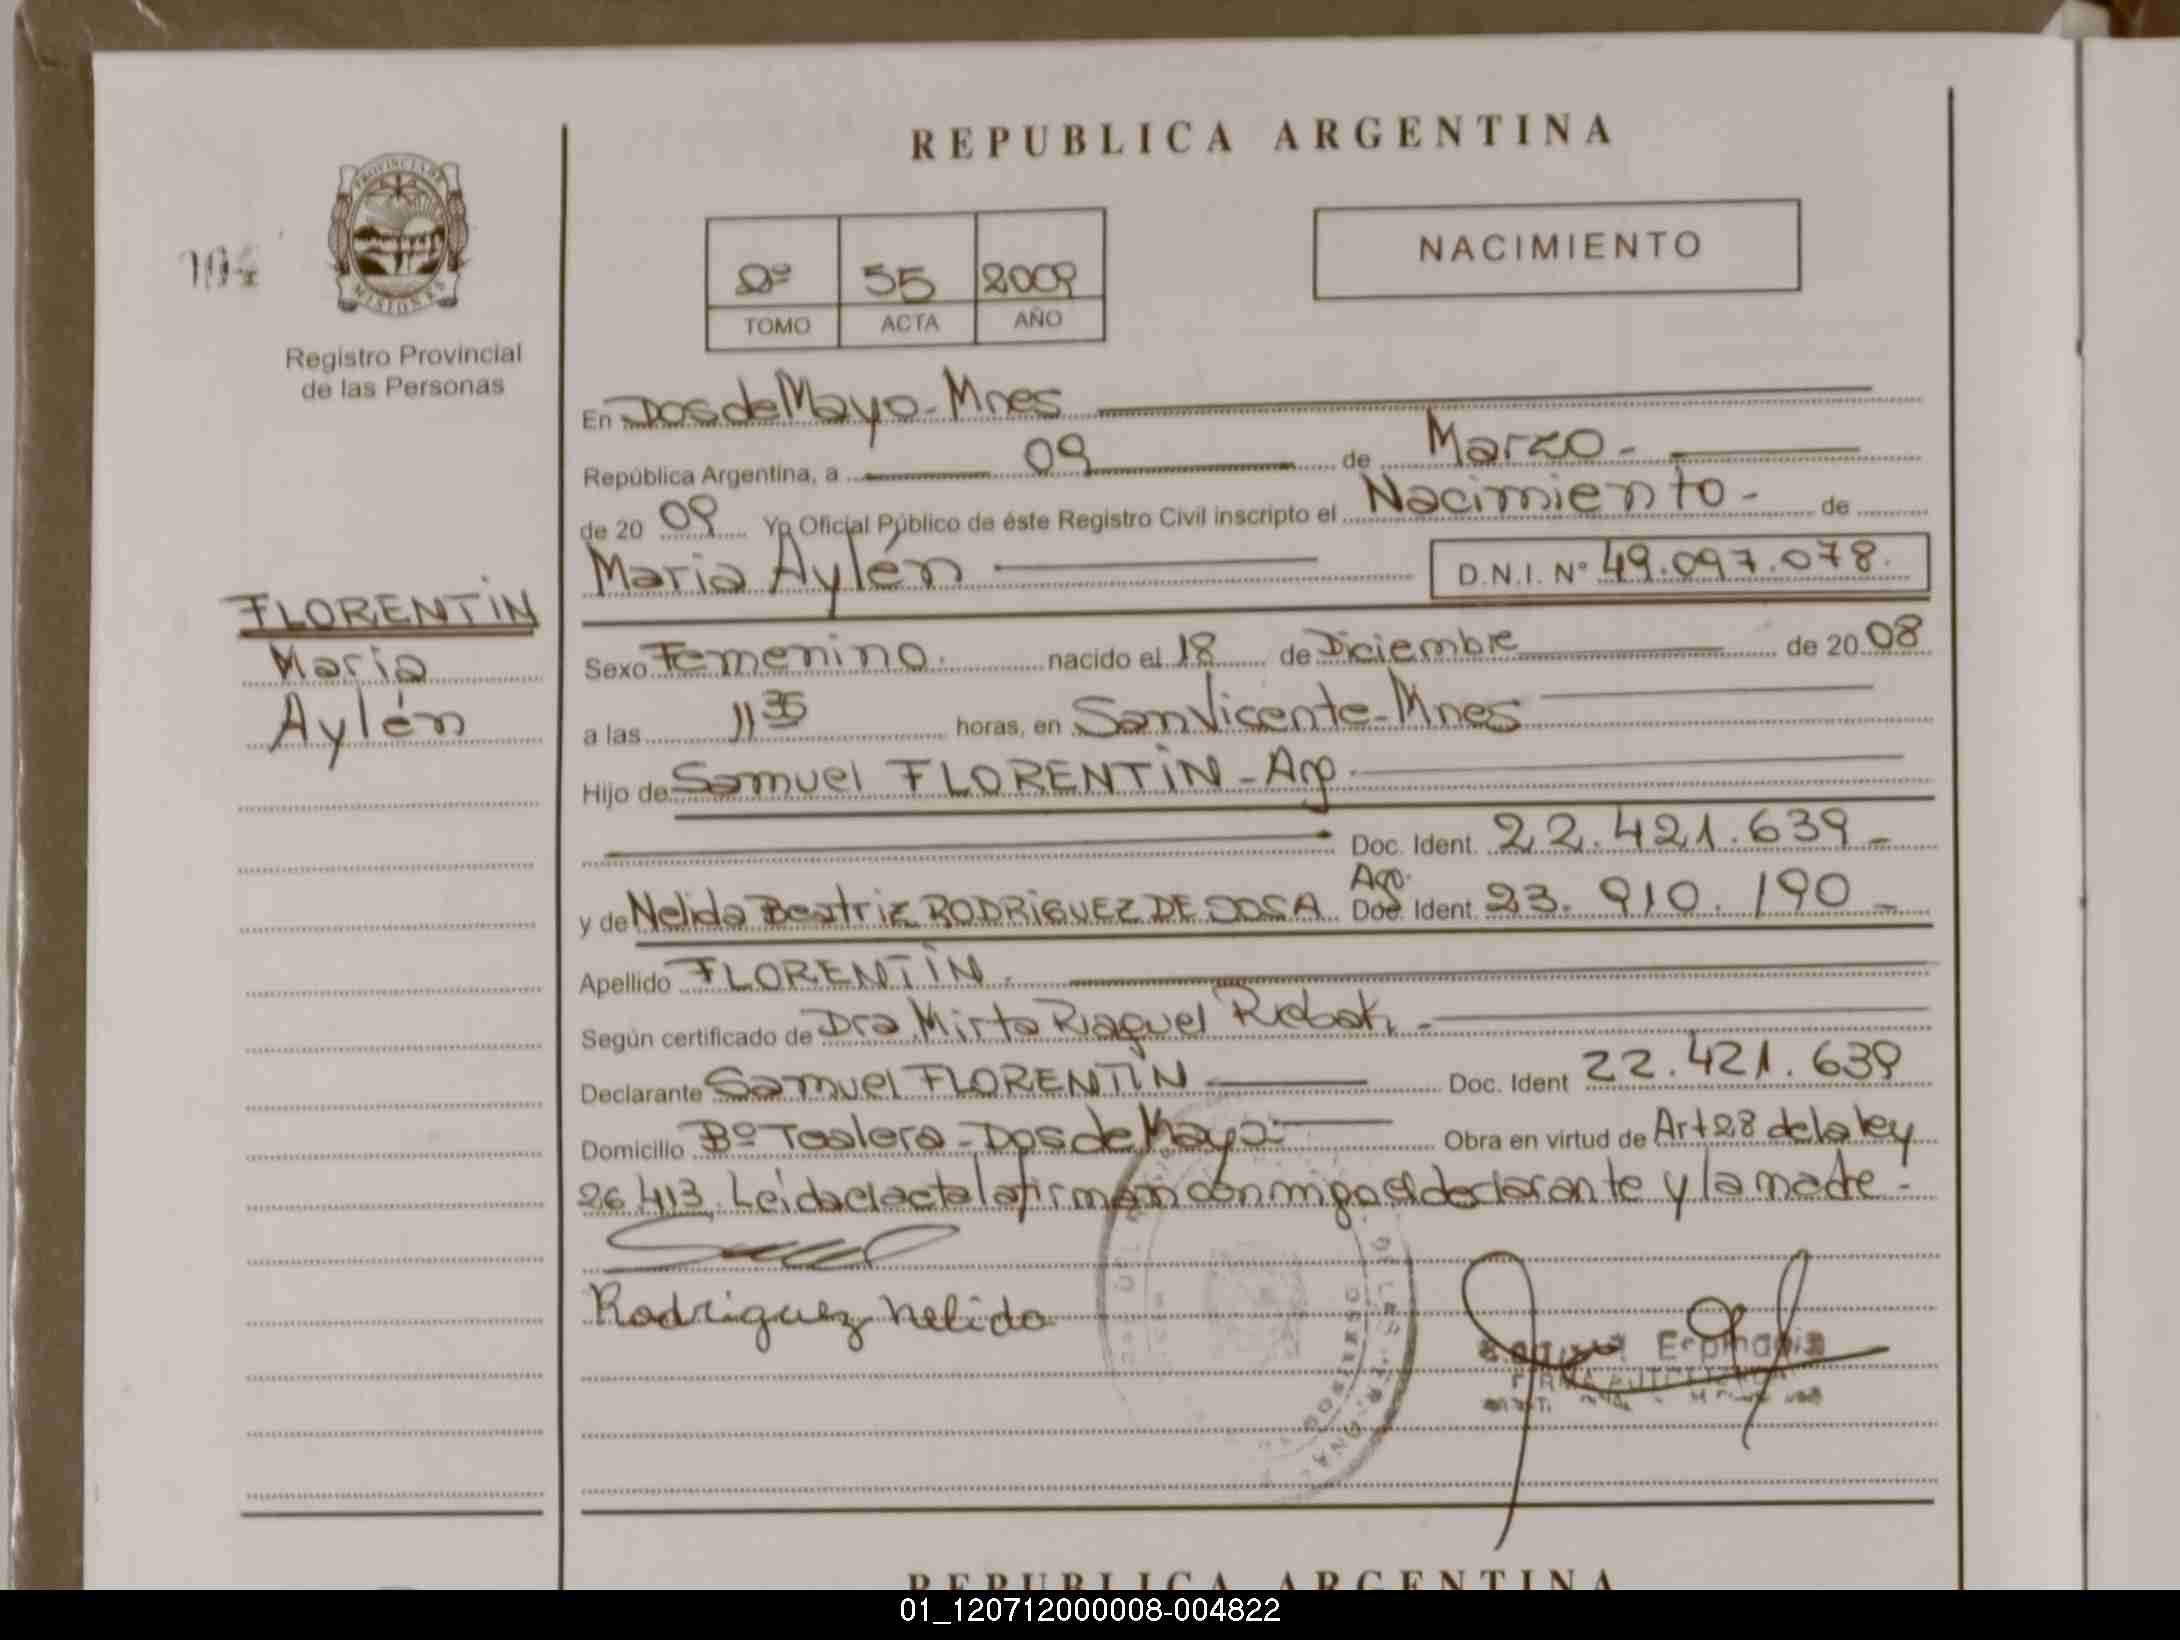 REPUBLICA ARGENTINA
PROVINCIA DE
MISIONES
Registro Provincial
de las Personas
2º 55 2009
TOMO ACTA AÑO
NACIMIENTO
En Dos de Mayo - Mnes
República Argentina, a 09 de Marzo -
de 20 09 Yo Oficial Público de éste Registro Civil inscripto el Nacimiento - de
Maria Aylén D.N.I. Nº 49.097.078.
FLORENTIN
Maria
Aylén
Sexo Femenino. nacido el 18 de Diciembre de 20 08
a las 11 35 horas, en San Vicente - Mnes
Hijo de Samuel FLORENTIN - Arg.
Doc. Ident. 22.421.639 -
Arg.
y de Nelida Beatriz RODRIGUEZ DE SOSA Doc. Ident. 23.910.190 -
Apellido FLORENTIN.
Según certificado de Dra. Mirta Raquel
Declarante Samuel FLORENTIN Doc. Ident 22.421.639
Domicilio Bº - Dos de Mayo. Obra en virtud de Art 28 de la ley
26.413. Leida el acta la firman conmigo el declarante y la madre -
Rodriguez Nelida
REPUBLICA ARGENTINA
01_120712000008-004822